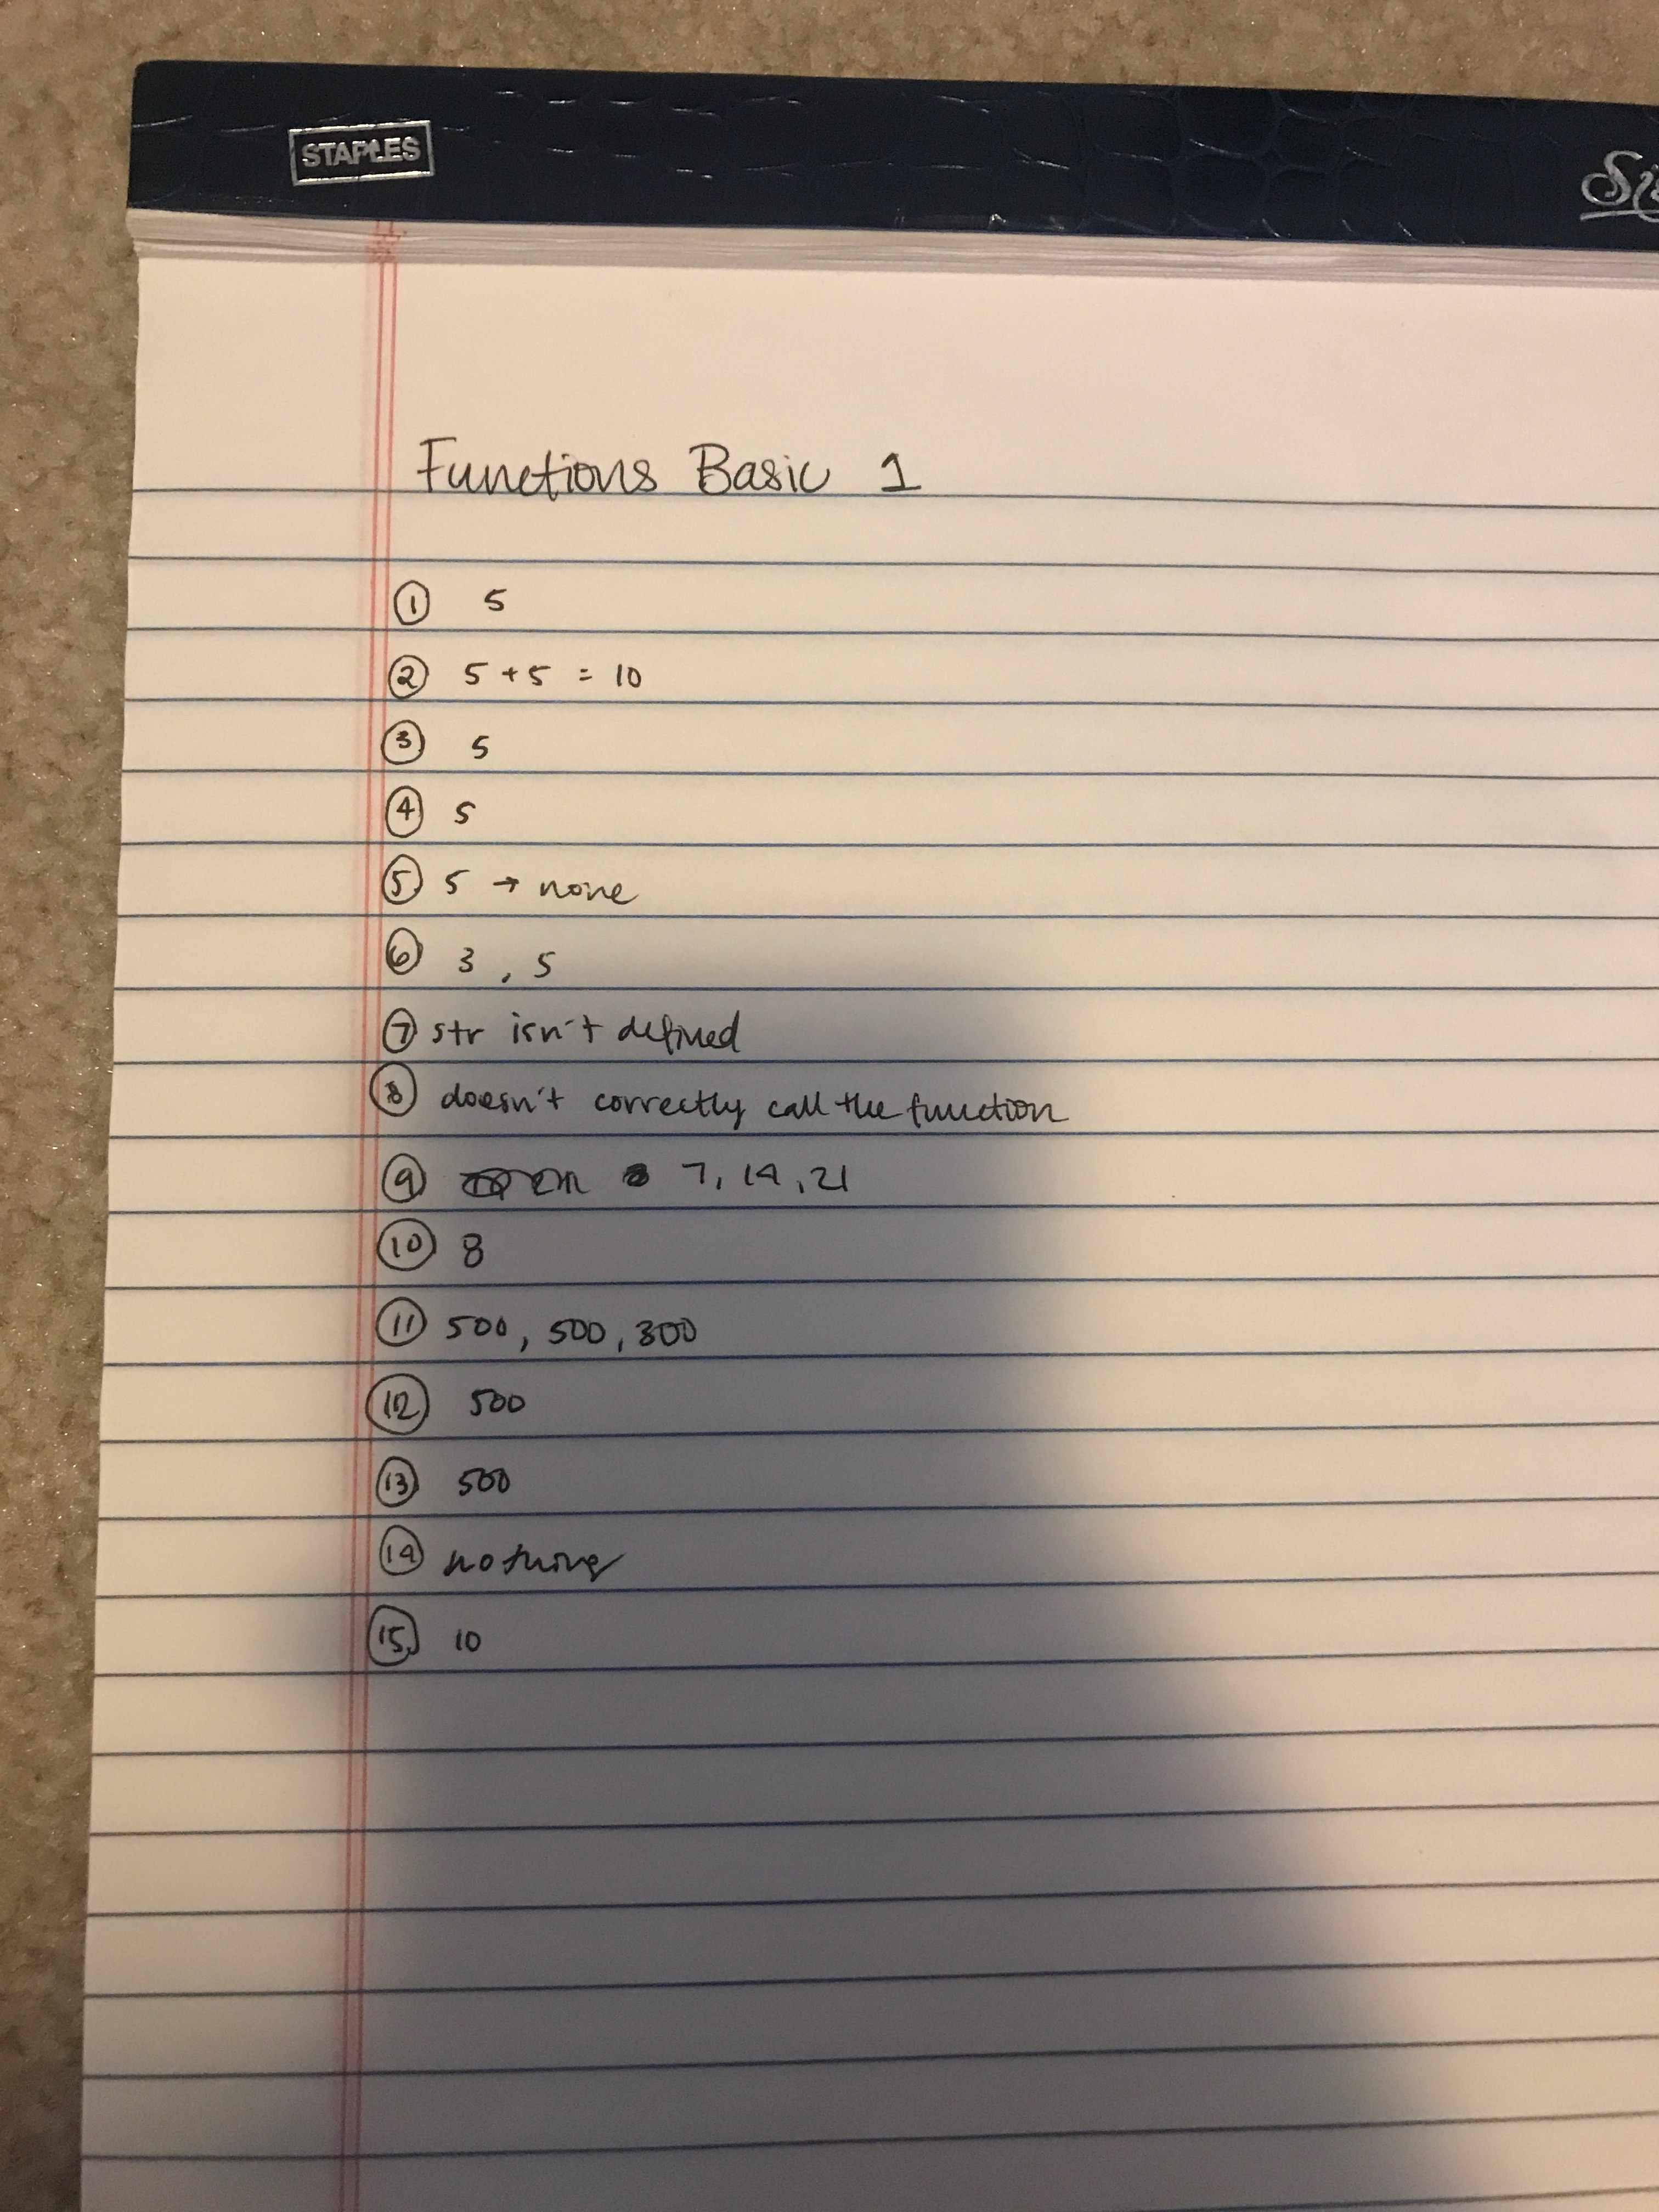 STAPLES
Functions Basic 1
1 5
2 5 + 5 = 10
3 5
4 5
5 5 → none
6 3, 5
7 str isn't defined
8 doesn't correctly call the function
9 7, 14, 21
10 8
11 500, 500, 300
12 500
13 500
14 nothing
15 10